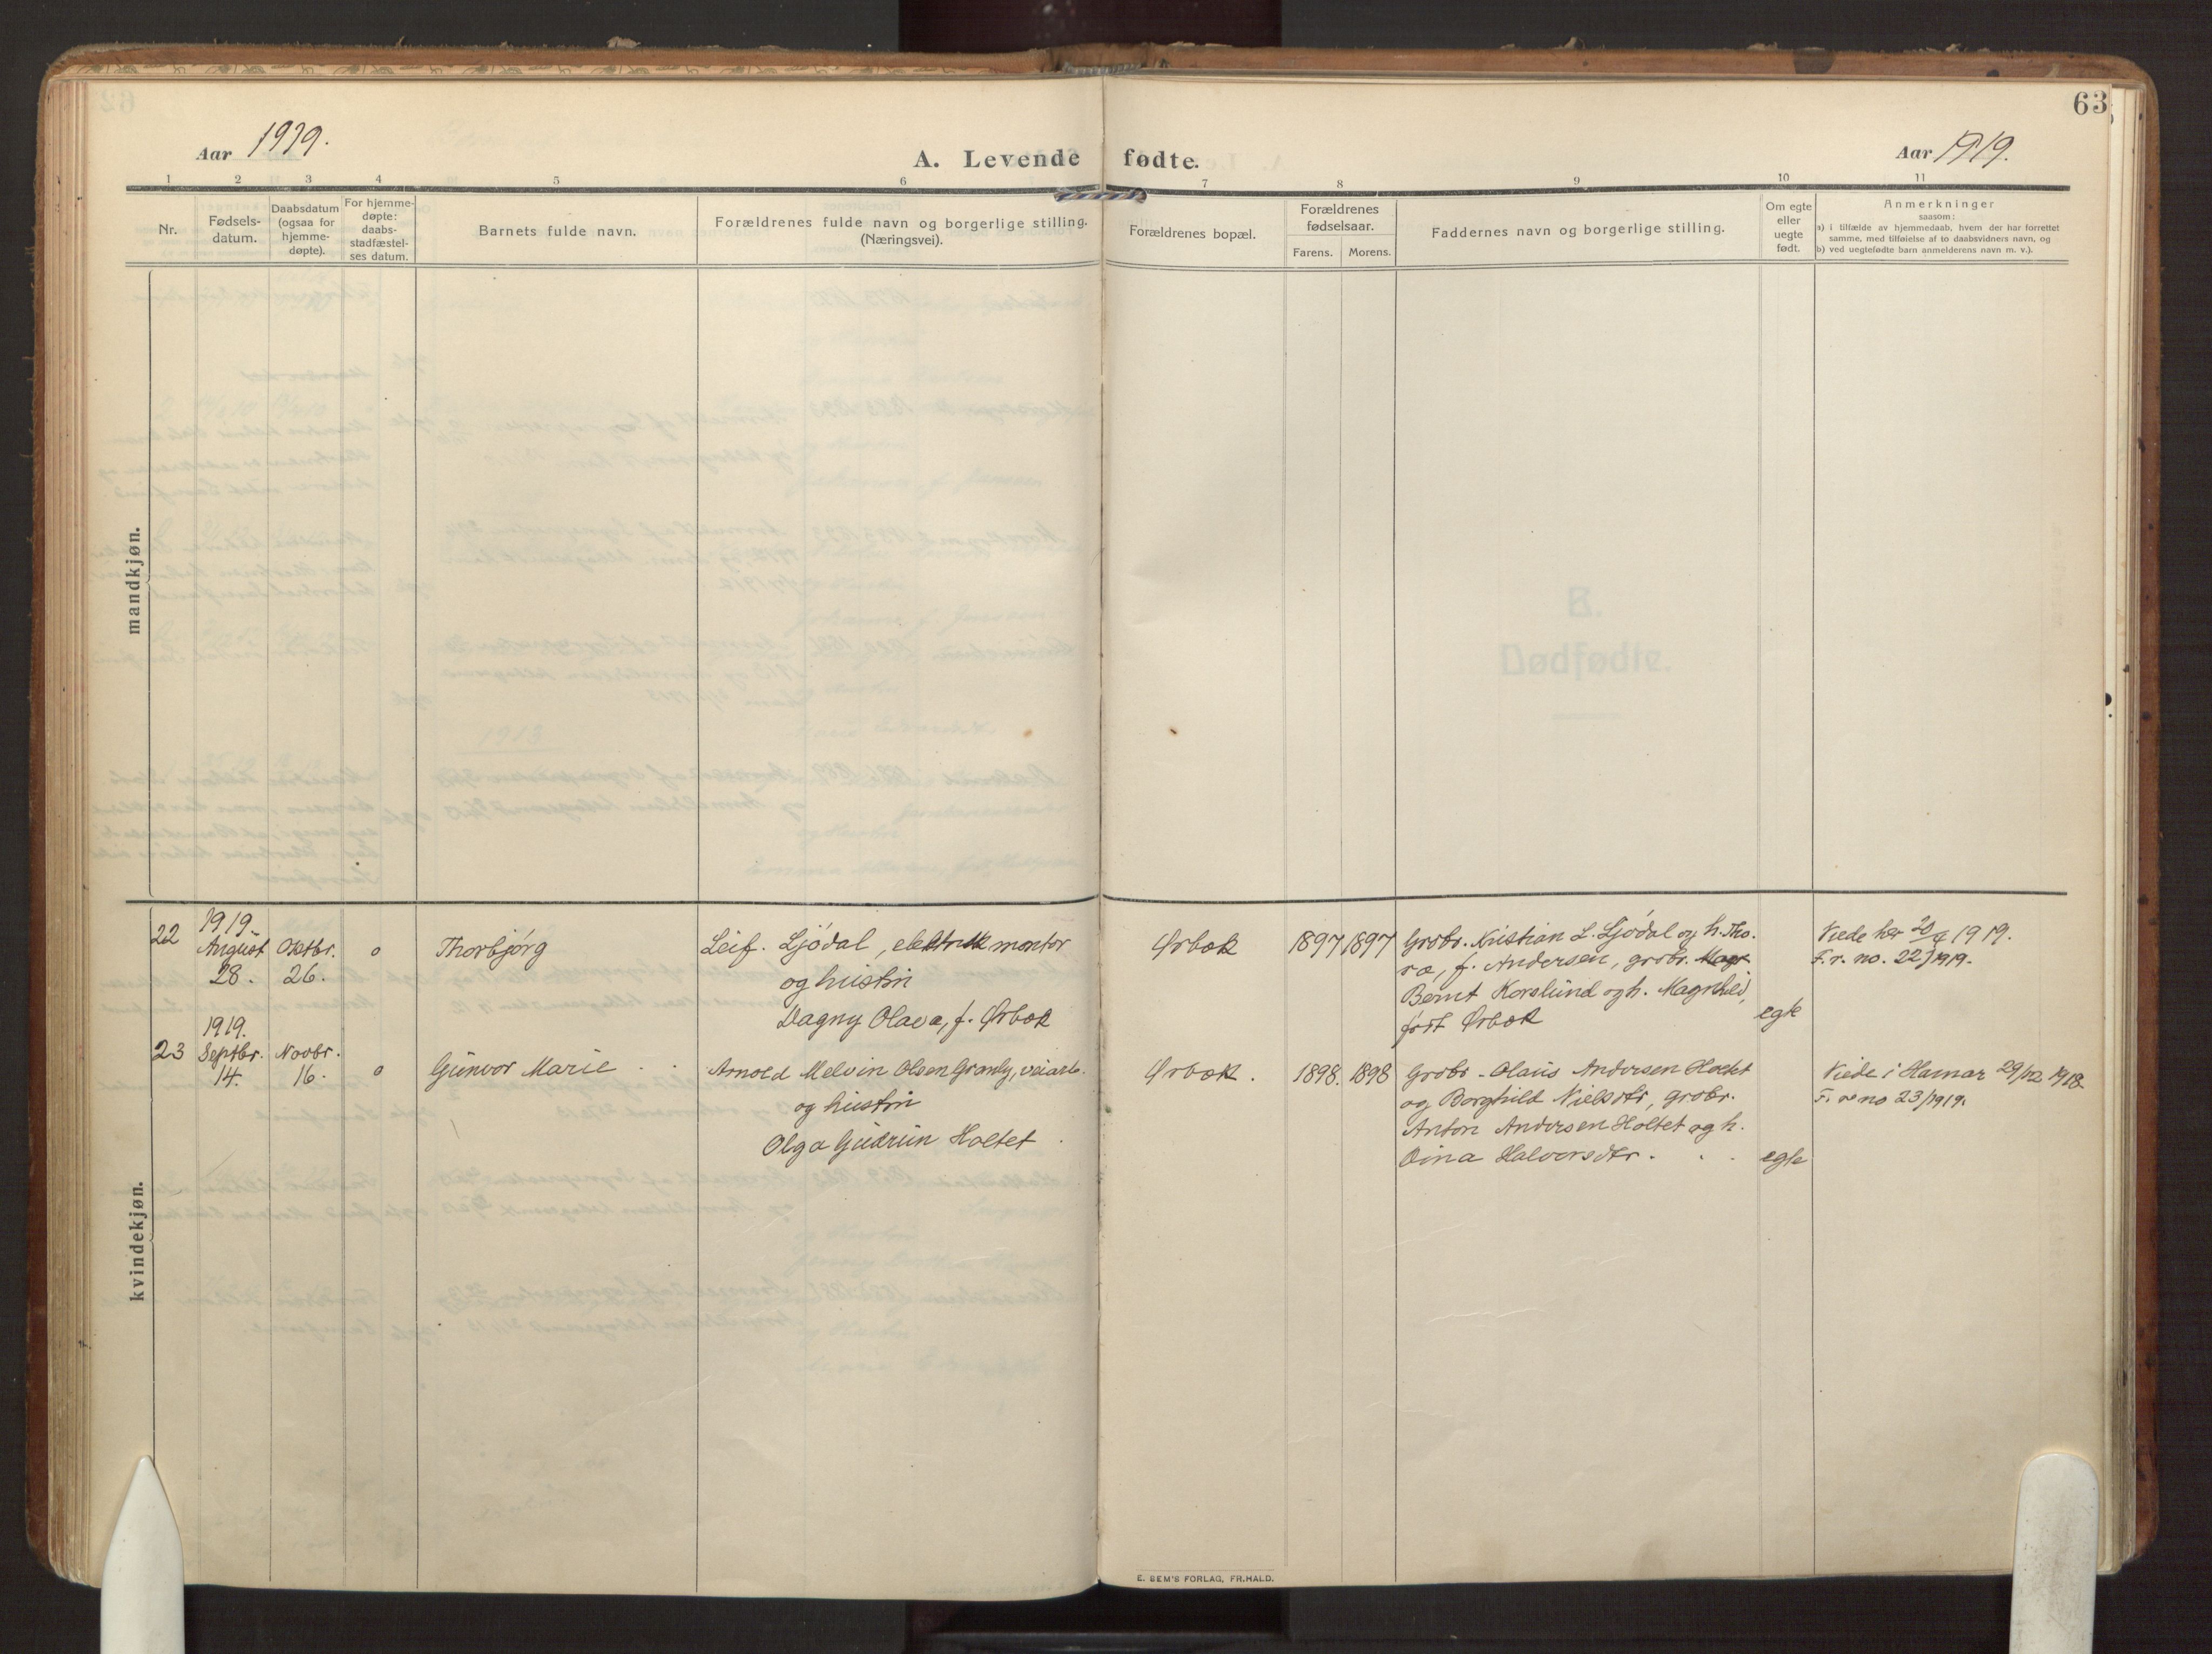 63
Aar 1919.
A. Levende fødte.
Aar 1919.
1 2 3 4 5 6 7 8 9 10 11
Nr.
Fødsels-
datum.
Daabsdatum
(ogsaa for
hjemme-
døpte).
For hjemme-
døpte:
daabs-
stadfæstel-
ses datum.
Barnets fulde navn.
Forældrenes fulde navn og borgerlige stilling.
(Næringsvei).
Forældrenes bopæl.
Forældrenes
fødselsaar.
Farens. Morens.
Faddernes navn og borgerlige stilling.
Om egte
eller
uegte
født.
Anmerkninger
saasom:
a) i tilfælde av hjemmedaab, hvem der har forrettet
samme, med tilføielse af to daabsvidners navn, og
b) ved uegtefødte barn anmelderens navn m. v.).
mandkjøn.
B.
Dødfødte.
kvindekjøn.
22
1919.
August
28.
Oktbr.
26.
o
Thorbjørg
Leif. Ljødal, elektrisk montør
og hustru
Dagny Olava, f. Ørbæk
Ørbæk
1897 1897
Grobr. Kristian L. Ljødal og h. Tho-
ra, f. Andersen, grobr.
Bernt Korslund og h. Magnhild,
født Ørbæk
egte
Viede her 20/4 1919.
F. r. no. 22/1919.
23
1919.
Septbr.
14.
Novbr.
16.
o
Gunvor Marie
Arnold Melvin Olsen Granly, veiarb.
og hustru
Olga Gudrun Holtet
Ørbæk.
1898. 1898
Grobr. Olaus Andersen Holtet
og Borghild Nielsdtr, grobr.
Anton Andersen Holtet og h.
Dina Halvorsdtr.
egte
Viede i Hamar 29/12 1918.
F. r. no 23/1919.
E. SEM'S FORLAG, FR.HALD.